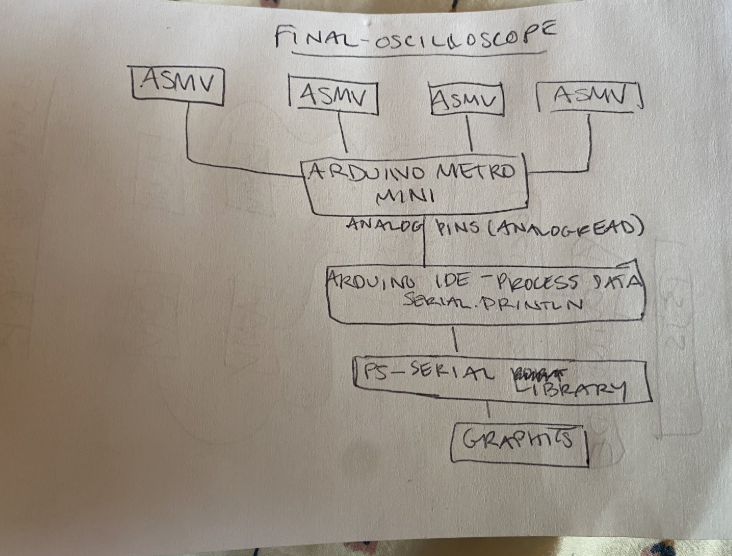 FINAL-OSCILLOSCOPE
ASMV
ASMV
ASMV
ASMV
ARDUINO METRO
MINI
ANALOG PINS (ANALOGREAD)
ARDUINO IDE - PROCESS DATA
SERIAL.PRINTLN
P5-SERIAL
LIBRARY
GRAPHICS